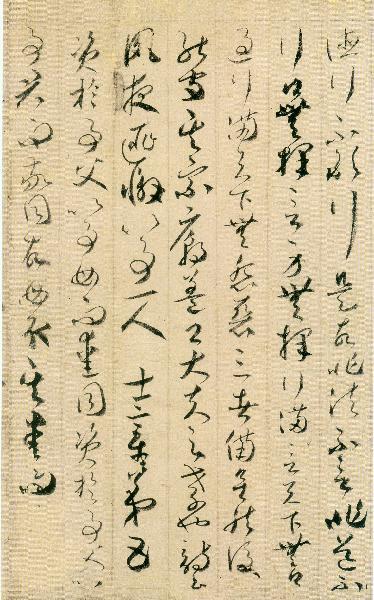 德行不敢行是故非法不言非道不
行口無擇言身無擇行滿言天下無口
過行滿天下無怨惡三者備矣然後
能守其宗廟蓋卿大夫之孝也詩云
夙夜匪懈以事一人 士章第五
資於事父以事母而愛同資於事父以
事君而敬同故母取其愛而